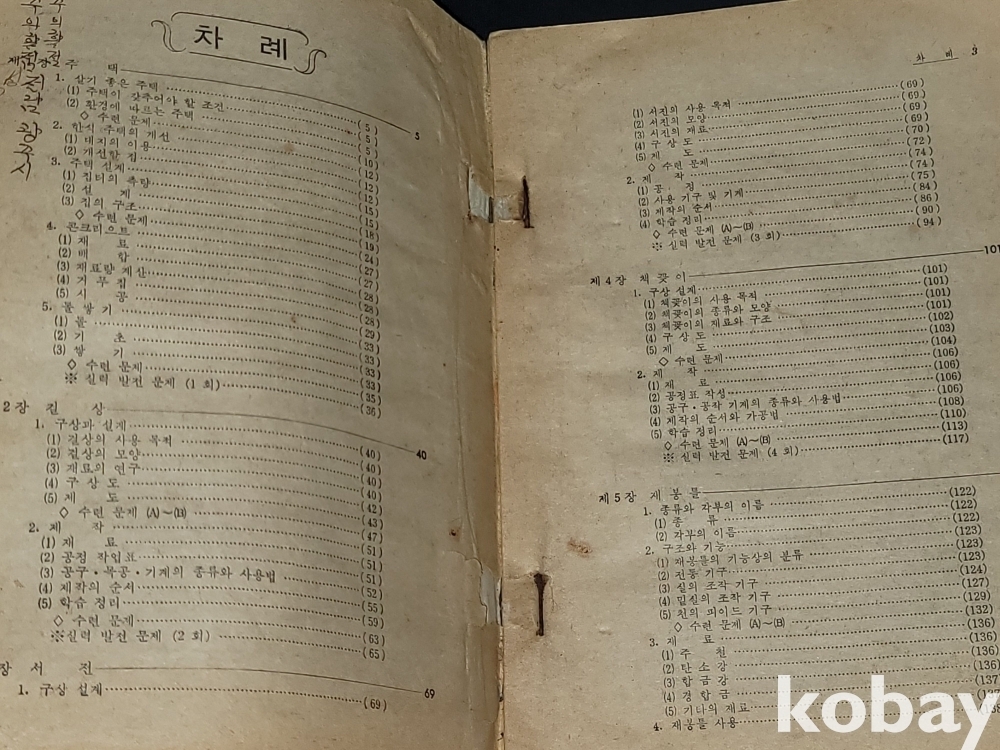 차 례
제 장 주 택 5
1. 살기 좋은 주택 (5)
(1) 주택이 갖추어야 할 조건 (5)
(2) 환경에 따르는 주택
◇ 수련 문제
2. 한식 주택의 개선
(1) 대지의 이용
(2) 개선할 집
3. 주택 설계
(1) 집터의 측량
(2) 설 계
(3) 집의 구조
◇ 수련 문제
4. 콘크리이트
(1) 재 료
(2) 배 합
(3) 재료량 계산
(4) 거 푸 집
(5) 시 공
5. 돌 쌓 기
(1) 돌
(2) 기 초
(3) 쌓 기
◇ 수련 문제 (35)
※ 실력 발전 문제 (1 회) (36)
2 장 걸 상 40
1. 구상과 설계 (40)
(1) 걸상의 사용 목적 (40)
(2) 걸상의 모양 (40)
(3) 재료의 연구 (40)
(4) 구 상 도 (42)
(5) 제 도 (43)
◇ 수련 문제 (A)~(B) (47)
2. 제 작 (51)
(1) 재 료 (51)
(2) 공정 작업표 (51)
(3) 공구·목공·기계의 종류와 사용법 (52)
(4) 제작의 순서 (55)
(5) 학습 정리 (59)
◇ 수련 문제 (63)
※ 실력 발전 문제 (2 회) (65)
장 서 진 69
1. 구상 설계 (69)
차 례 3
(1) 서진의 사용 목적 (69)
(2) 서진의 모양 (69)
(3) 서진의 재료 (69)
(4) 구 상 도 (70)
(5) 제 도 (72)
◇ 수련 문제 (74)
2. 제 작 (74)
(1) 공 정 (75)
(2) 사용 기구 및 기계 (84)
(3) 제작의 순서 (86)
(4) 학습 정리 (90)
◇ 수련 문제 (A)~(B) (94)
※ 실력 발전 문제 (3 회)
제 4 장 책 꽂 이 101
1. 구상 설계 (101)
(1) 책꽂이의 사용 목적 (101)
(2) 책꽂이의 종류와 모양 (101)
(3) 책꽂이의 재료와 구조 (102)
(4) 구 상 도 (103)
(5) 제 도 (104)
◇ 수련 문제 (106)
2. 제 작 (106)
(1) 재 료 (106)
(2) 공정표 작성 (106)
(3) 공구·공작 기계의 종류와 사용법 (108)
(4) 제작의 순서와 가공법 (110)
(5) 학습 정리 (113)
◇ 수련 문제 (A)~(B) (117)
※ 실력 발전 문제 (4 회)
제 5 장 재 봉 틀
1. 종류와 각부의 이름 (122)
(1) 종 류 (122)
(2) 각부의 이름 (122)
2. 구조와 기능 (123)
(1) 재봉틀의 기능상의 분류 (123)
(2) 전동 기구 (123)
(3) 실의 조작 기구 (124)
(4) 밑실의 조작 기구 (127)
(5) 천의 피이드 기구 (129)
◇ 수련 문제 (A)~(B) (132)
3. 재 료 (136)
(1) 주 철 (136)
(2) 탄 소 강 (136)
(3) 합 금 강 (136)
(4) 경 합 금
(5) 기타의 재료
4. 재봉틀 사용
kobay